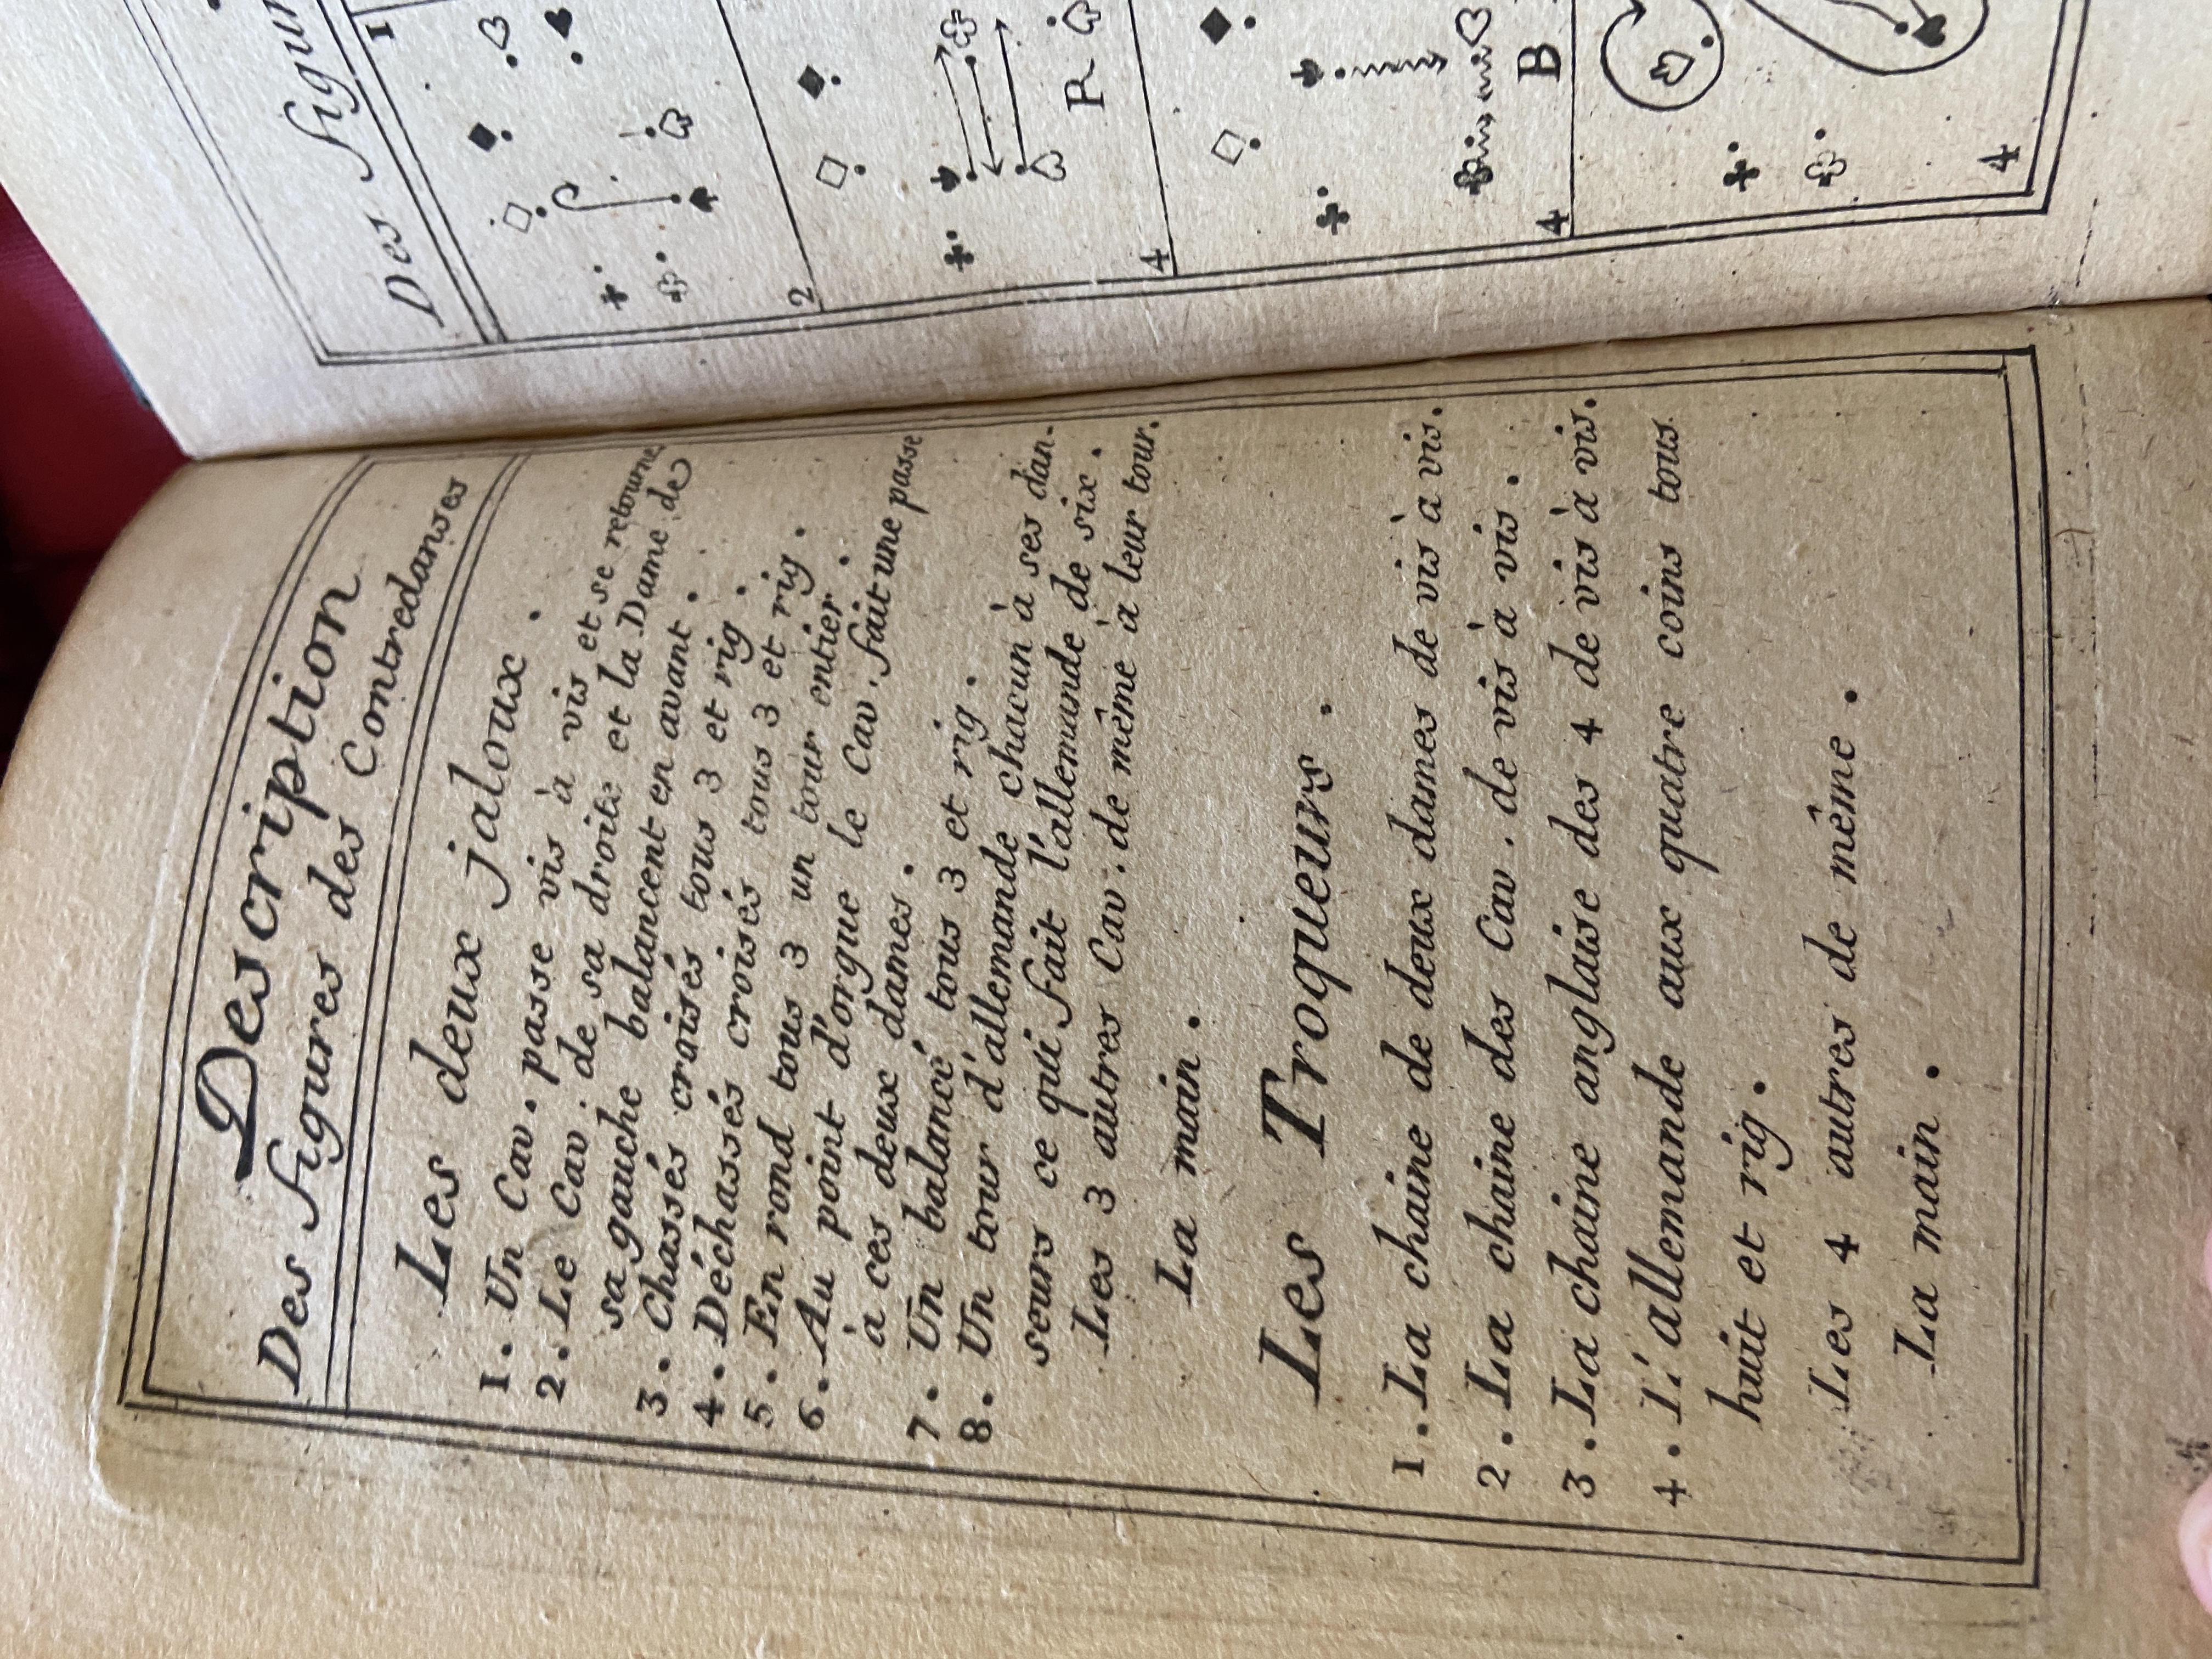 Description
Des figures des Contredanses
Les deux jaloux.
1. Un Cav. passe vis à vis et se retourne
2. Le Cav. de sa droite et la Dame de
sa gauche balancent en avant.
3. Chassés croisés tous 3 et rig.
4. Déchassés croisés tous 3 et rig.
5. En rond tous 3 un tour entier.
6. Au point d'orgue le Cav. fait une passe
à ces deux dames.
7. Un balancé tous 3 et rig.
8. Un tour d'allemande chacun à ses dan-
seurs ce qui fait l'allemande de six.
Les 3 autres Cav. de même à leur tour.
La main.
Les Troqueurs.
1. La chaine de deux dames de vis à vis.
2. La chaine des Cav. de vis à vis.
3. La chaine anglaise des 4 de vis à vis.
4. L'allemande aux quatre coins tous
huit et rig.
Les 4 autres de même.
La main.
Des
1
2
R
4
B
4
4